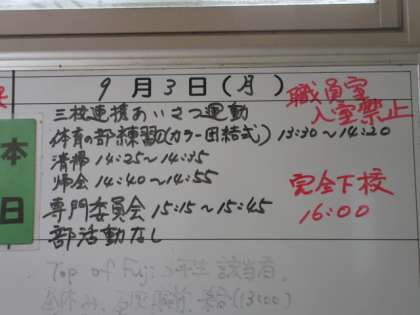 9月3日(月)
職員室
入室禁止
三校連携あいさつ運動
体育の部練習①(カラー団結式) 13:30～14:20
清掃 14:25～14:35
帰会 14:40～14:55
専門委員会 15:15～15:45
部活動なし
完全下校
16:00
本
日
Top of Fuji 2年生 該当者